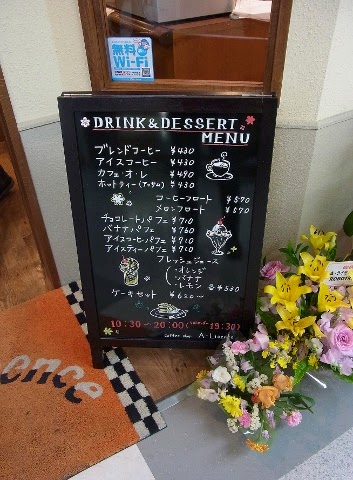 無料
Wi-Fi
DRINK & DESSERT
MENU
ブレンドコーヒー ¥430
アイスコーヒー ¥430
カフェ・オ・レ ¥490
ホットティー(アッサム) ¥430
コーヒーフロート ¥570
メロンフロート ¥570
チョコレートパフェ ¥710
バナナパフェ ¥760
アイスコーヒーパフェ ¥710
アイスティーパフェ ¥710
フレッシュジュース
・オレンジ
・バナナ
・レモン 各¥530
ケーキセット ¥620～
10:30～20:00 19:30)
coffee shop
ence